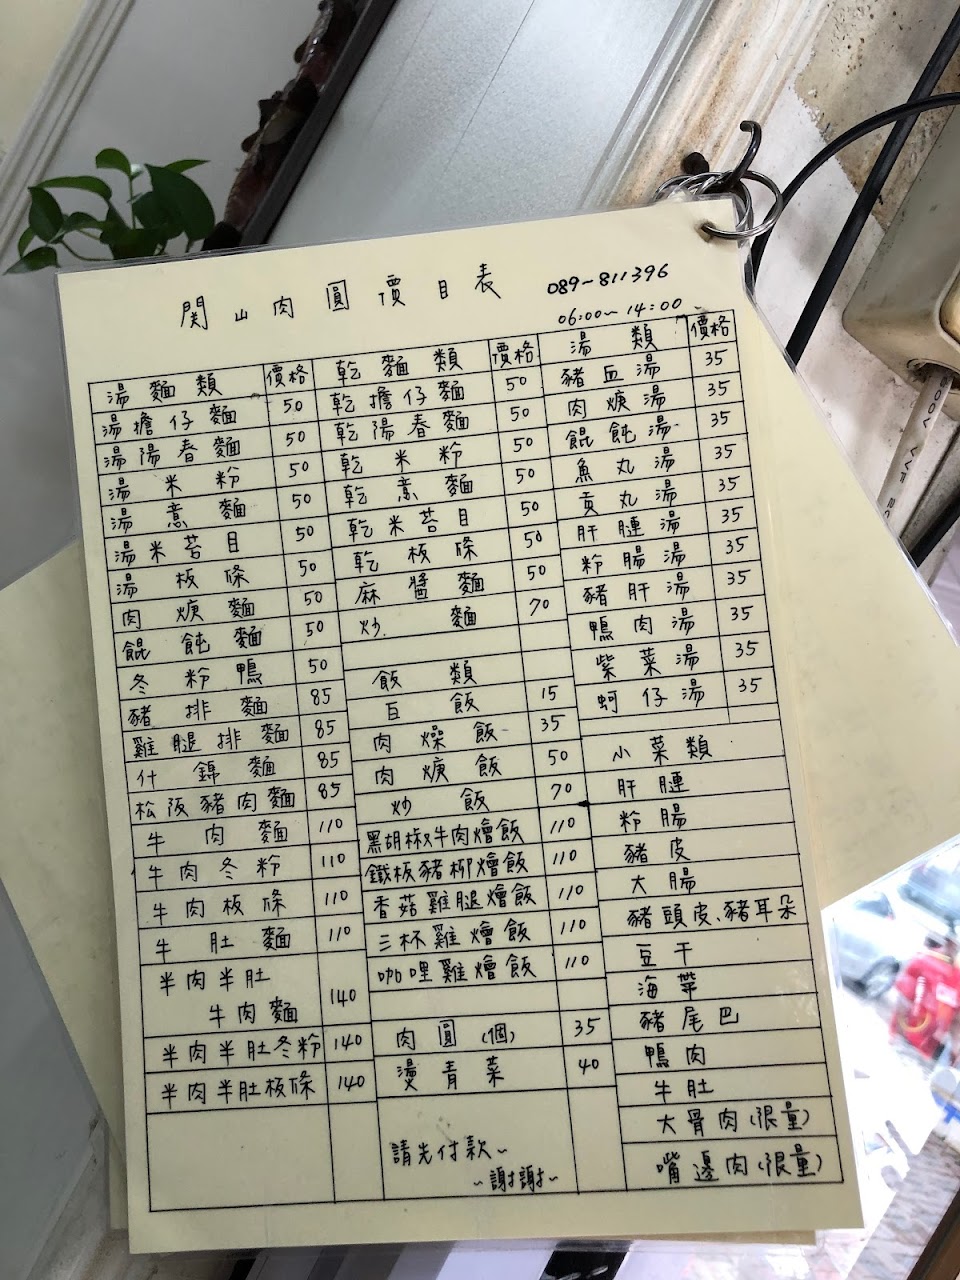 關山肉圓價目表 089-811396
06:00~14:00
湯麵類 價格
湯擔仔麵 50
湯陽春麵 50
湯米粉 50
湯意麵 50
湯米苔目 50
湯板條 50
肉焿麵 50
餛飩麵 50
冬粉鴨 50
豬排麵 85
雞腿排麵 85
什錦麵 85
松阪豬肉麵 85
牛肉麵 110
牛肉冬粉 110
牛肉板條 110
牛肚麵 110
半肉半肚
牛肉麵 140
半肉半肚冬粉 140
半肉半肚板條 140
乾麵類 價格
乾擔仔麵 50
乾陽春麵 50
乾米粉 50
乾意麵 50
乾米苔目 50
乾板條 50
麻醬麵 50
炒麵 70
飯類
白飯 15
肉燥飯 35
肉焿飯 50
炒飯 70
黑胡椒牛肉燴飯 110
鐵板豬柳燴飯 110
香菇雞腿燴飯 110
三杯雞燴飯 110
咖哩雞燴飯 110
肉圓(個) 35
燙青菜 40
請先付款~
~謝謝~
湯類 價格
豬血湯 35
肉焿湯 35
餛飩湯 35
魚丸湯 35
貢丸湯 35
肝腱湯 35
粉腸湯 35
豬肝湯 35
鴨肉湯 35
紫菜湯 35
蚵仔湯 35
小菜類
肝腱
粉腸
豬皮
大腸
豬頭皮、豬耳朵
豆干
海帶
豬尾巴
鴨肉
牛肚
大骨肉(限量)
嘴邊肉(限量)